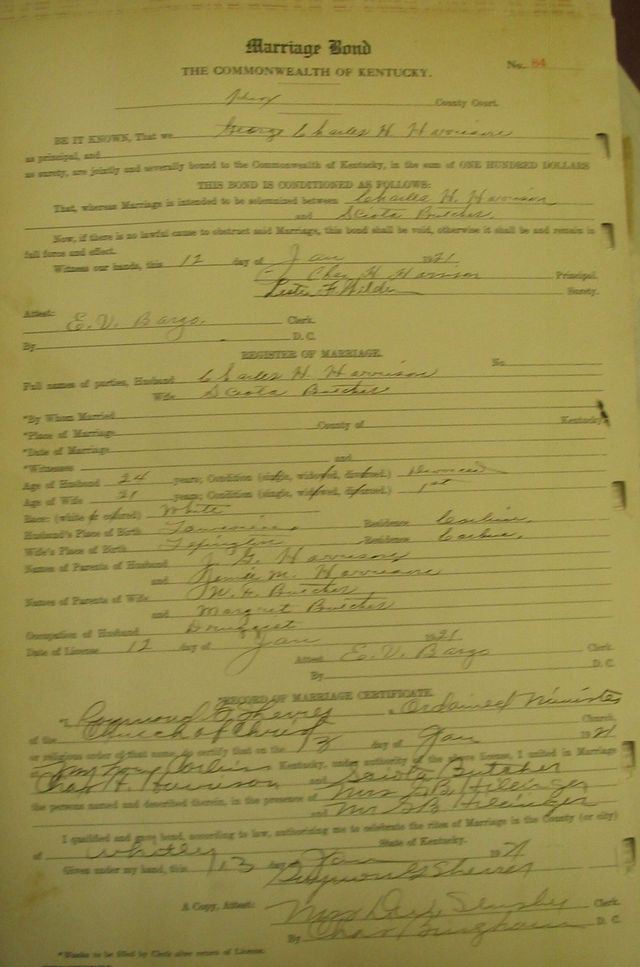 Marriage Bond
No. 84
THE COMMONWEALTH OF KENTUCKY.
Knox County Court.
BE IT KNOWN, That we George Charles H. Harrison
as principal, and
as surety, are jointly and severally bound to the Commonwealth of Kentucky, in the sum of ONE HUNDRED DOLLARS
THIS BOND IS CONDITIONED AS FOLLOWS:
That, whereas Marriage is intended to be solemnized between Charles H. Harrison
and Sciota Butcher
Now, if there is no lawful cause to obstruct said Marriage, this bond shall be void, otherwise it shall be and remain in
full force and effect.
Witness our hands, this 12 day of Jan 1921.
Chas H Harrison Principal.
Lester F. Wilder Surety.
Attest:
E. V. Bargo. Clerk.
By D. C.
REGISTER OF MARRIAGE.
No.
Full names of parties, Husband Charles H. Harrison
Wife Sciota Butcher
*By Whom Married
*Place of Marriage County of Kentucky
*Date of Marriage
*Witnesses and
Age of Husband 24 years; Condition (single, widowed, divorced.) Divorced
Age of Wife 21 years; Condition (single, widowed, divorced.) 1st
Race: (white or colored) White
Husband's Place of Birth Residence Corbin.
Wife's Place of Birth Lexington Residence Corbin.
Names of Parents of Husband J. G. Harrison
and M. Harrison
Names of Parents of Wife Butcher
and Margret Butcher
Occupation of Husband
Date of License 12 day of Jan 1921
Attest E. V. Bargo Clerk.
By D. C.
*RECORD OF MARRIAGE CERTIFICATE.
I, Raymond G Sherrer a Ordained Minister
of the Church of Christ Church,
or religious order of that name, do certify that on the 13 day of Jan 1921
at Corbin Kentucky, under authority of the above license, I united in Marriage
Chas H. Harrison and Sciota Butcher
the persons named and described therein, in the presence of Mrs G B
and Mr G B
I qualified and gave bond, according to law, authorizing me to celebrate the rites of Marriage in the County (or city)
of Whitley State of Kentucky.
Given under my hand, this 13 day Jan 1921
Raymond G Sherrer
A Copy, Attest: Clerk.
By Chas Bingham D. C.
*Blanks to be filled by Clerk after return of License.